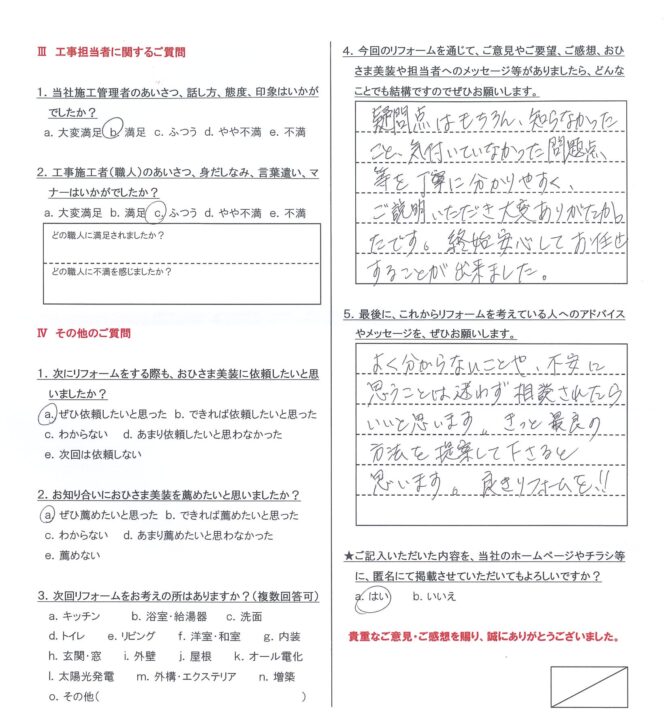 Ⅲ 工事担当者に関するご質問
1. 当社施工管理者のあいさつ、話し方、態度、印象はいかが
でしたか？
a. 大変満足 b. 満足 c. ふつう d. やや不満 e. 不満
2. 工事施工者（職人）のあいさつ、身だしなみ、言葉遣い、マ
ナーはいかがでしたか？
a. 大変満足 b. 満足 c. ふつう d. やや不満 e. 不満
どの職人に満足されましたか？
どの職人に不満を感じましたか？
Ⅳ その他のご質問
1. 次にリフォームをする際も、おひさま美装に依頼したいと思
いましたか？
a. ぜひ依頼したいと思った b. できれば依頼したいと思った
c. わからない d. あまり依頼したいと思わなかった
e. 次回は依頼しない
2. お知り合いにおひさま美装を薦めたいと思いましたか？
a. ぜひ薦めたいと思った b. できれば薦めたいと思った
c. わからない d. あまり薦めたいと思わなかった
e. 薦めない
3. 次回リフォームをお考えの所はありますか？（複数回答可）
a. キッチン b. 浴室・給湯器 c. 洗面
d. トイレ e. リビング f. 洋室・和室 g. 内装
h. 玄関・窓 i. 外壁 j. 屋根 k. オール電化
l. 太陽光発電 m. 外構・エクステリア n. 増築
o. その他（ ）
4. 今回のリフォームを通じて、ご意見やご要望、ご感想、おひ
さま美装や担当者へのメッセージ等がありましたら、どんな
ことでも結構ですのでぜひお願いします。
疑問点はもちろん、知らなかった
こと、気付いていなかった問題点、
等を丁寧に分かりやすく、
ご説明いただき大変ありがたかっ
たです。終始安心してお任せ
することが出来ました。
5. 最後に、これからリフォームを考えている人へのアドバイス
やメッセージを、ぜひお願いします。
よく分からないことや、不安に
思うことは迷わず相談されたら
いいと思います。きっと最良の
方法を提案して下さると
思います。良きリフォームを!!
★ご記入いただいた内容を、当社のホームページやチラシ等
に、匿名にて掲載させていただいてもよろしいですか？
a. はい b. いいえ
貴重なご意見・ご感想を賜り、誠にありがとうございました。